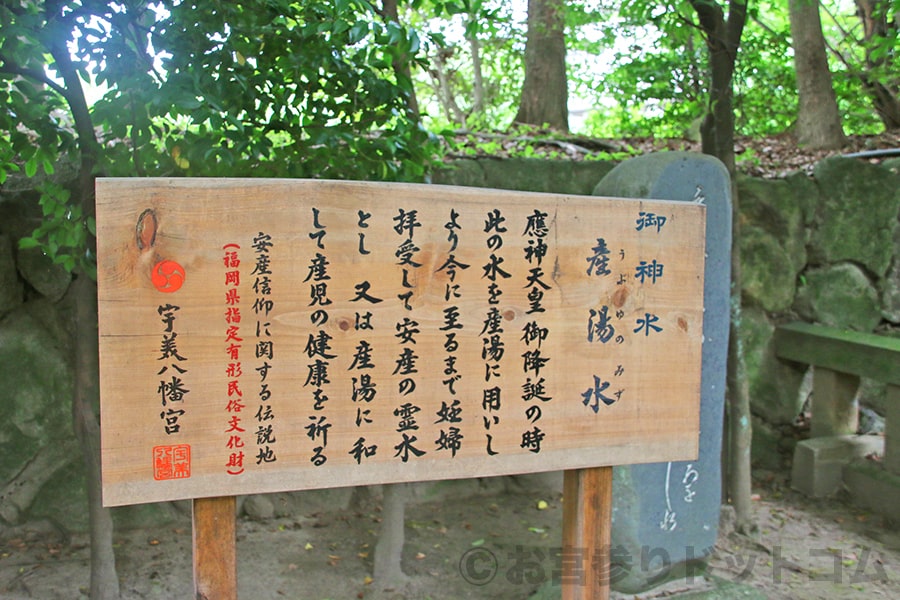 御神水
産湯水
うぶゆのみず
應神天皇 御降誕の時
此の水を産湯に用いし
より今に至るまで妊婦
拝受して安産の霊水
とし 又は産湯に和
して産児の健康を祈る
安産信仰に関する伝説地
(福岡県指定有形民俗文化財)
宇美八幡宮
©お宮参りドットコム